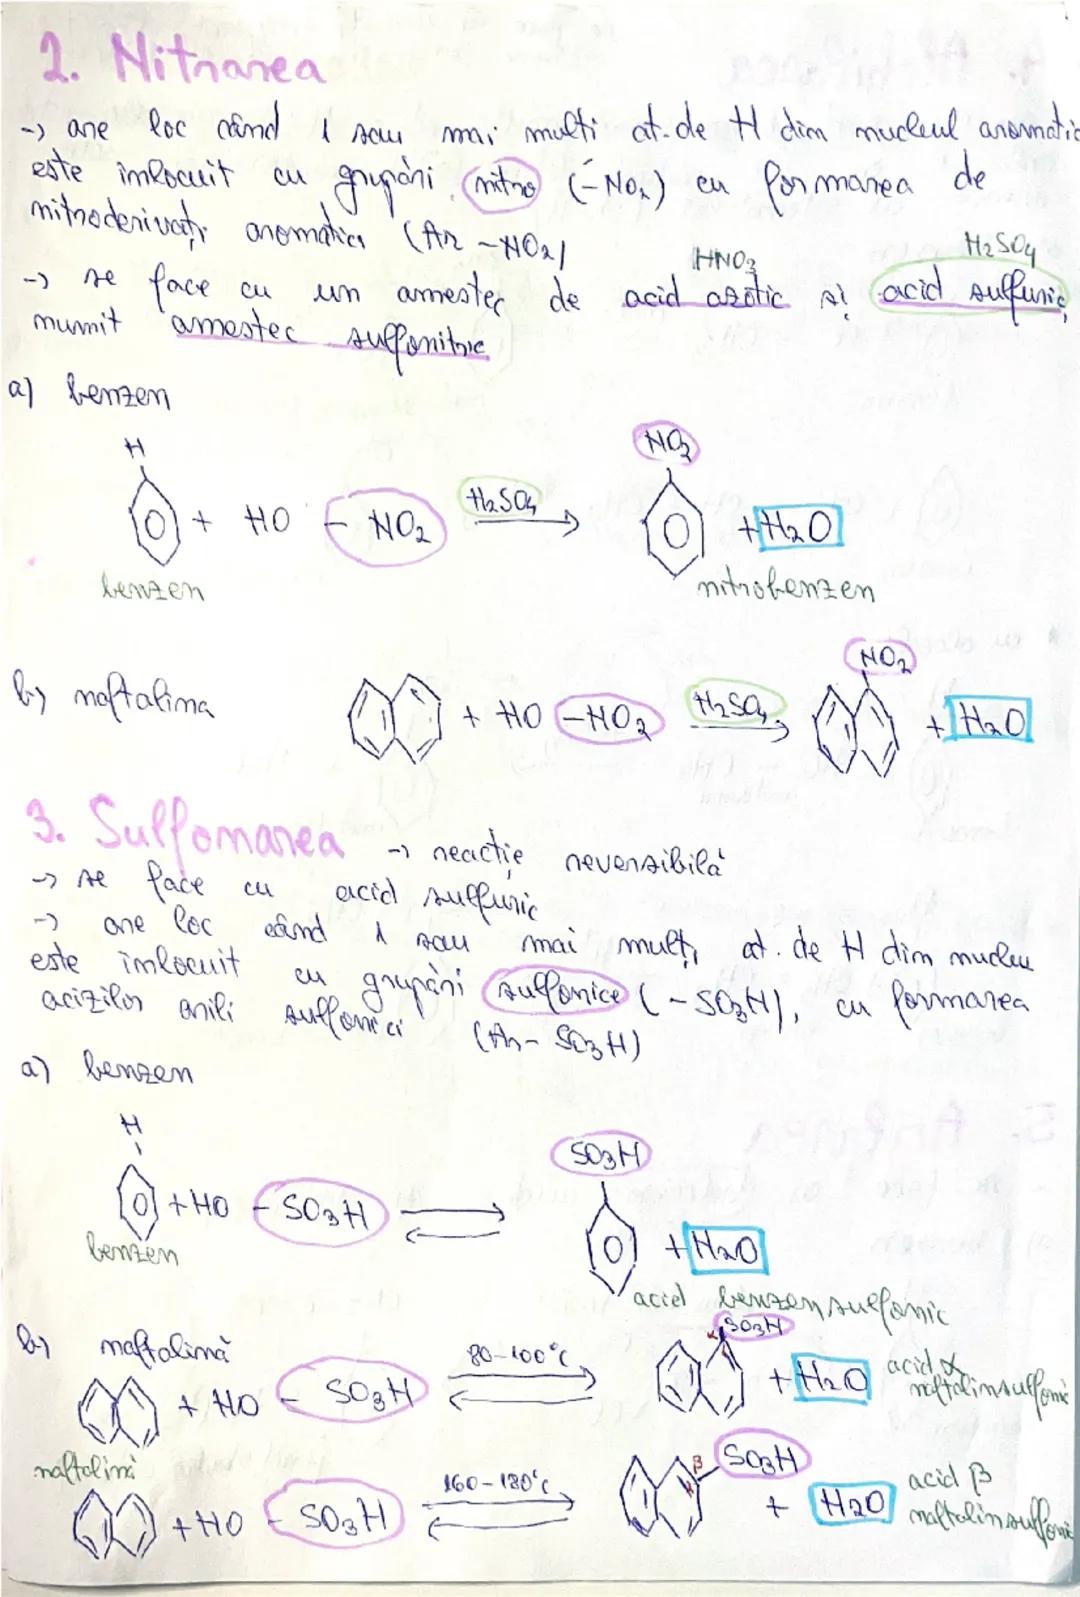 2. Nitrarea
-> are loc când 1 sau mai multi at. de H din nucleul aromatic
este înlocuit cu grupări nitro (-NO2) cu formarea de
nitroderivați aromatici (Ar -NO2)
HNO3 H2SO4
-> se face cu un amestec de acid azotic și acid sulfuric,
numit amestec sulfonitric
a) benzen
H NO2
+ HO - NO2 H2SO4 + H2O
benzen nitrobenzen
NO2
b) naftalina + HO -NO2 H2SO4 + H2O
3. Sulfonarea -> reactie reversibilă
-> se face cu acid sulfuric
-> are loc când 1 sau mai mulți at. de H din nucleu
este înlocuit cu grupări sulfonice (-SO3H), cu formarea
acizilor arili sulfonici (Ar- SO3H)
a) benzen
H SO3H
+ HO - SO3H + H2O
benzen acid benzensulfonic
b) naftalină 80-100°C α SO3H
+ HO - SO3H + H2O acid α naftalinsulfonic
naftalină 160-180°C β SO3H
+ HO - SO3H α + H2O acid β naftalinsulfonic